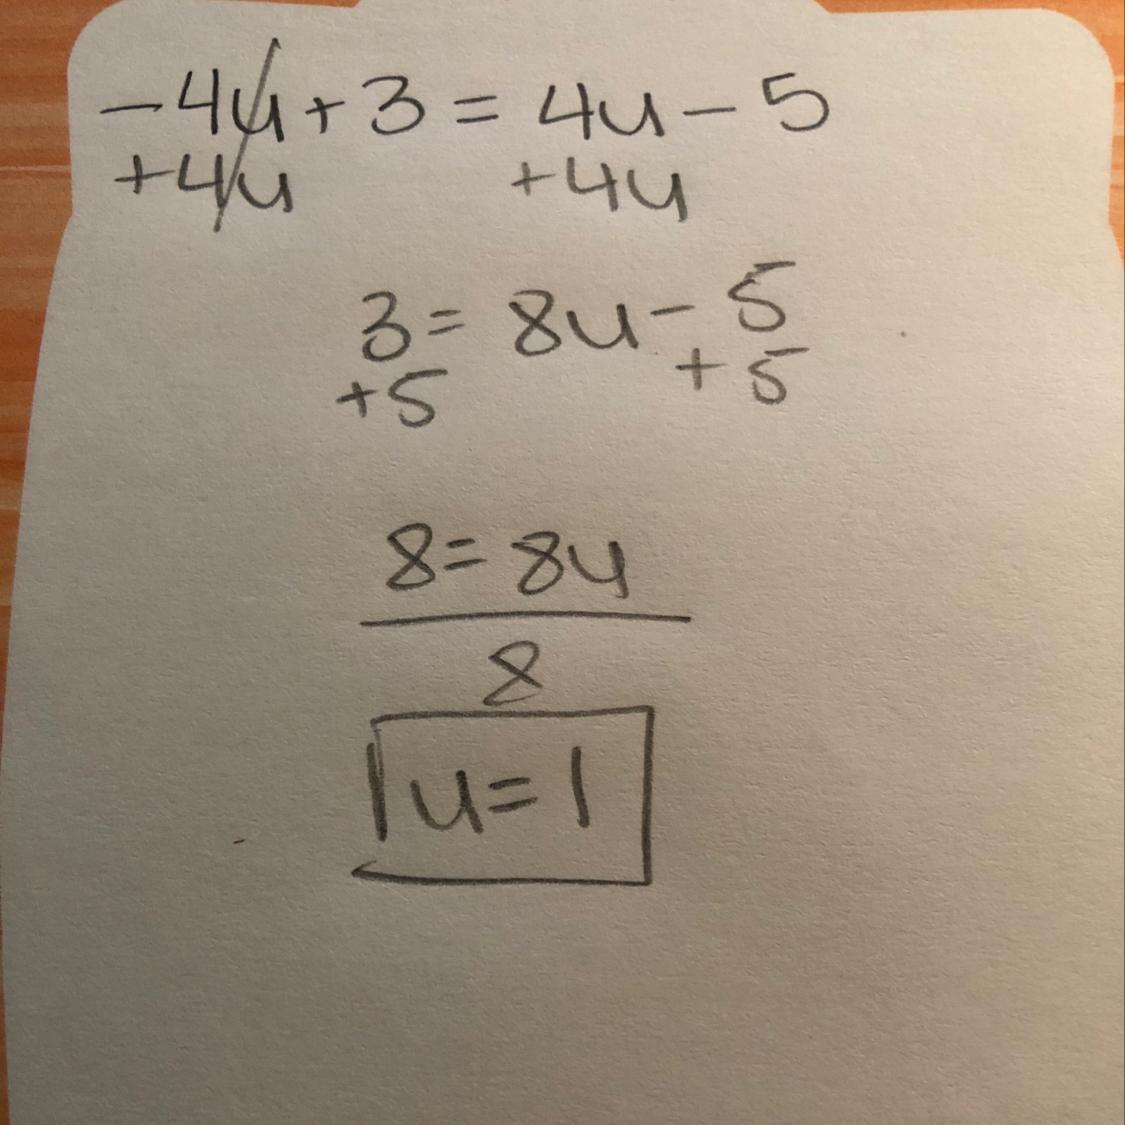 -4u+3 = 4u-5
+4u +4u
3 = 8u-5
+5 +5
8 = 8u
8
u=1